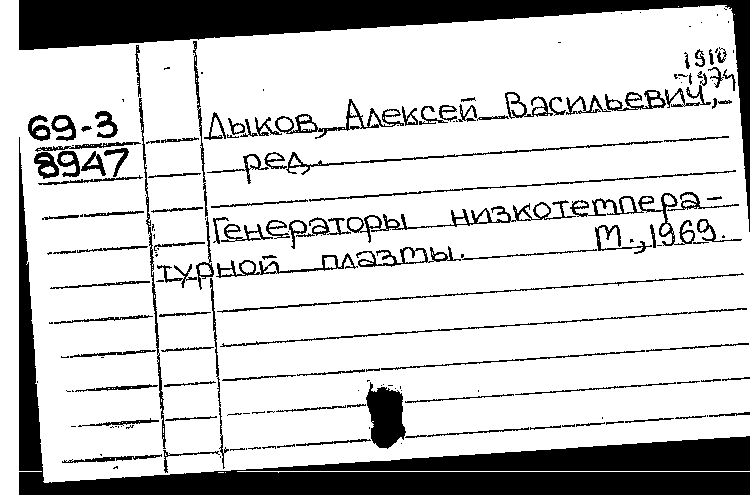 1910
-1974
69-3
8947
Лыков, Алексей Васильевич,
ред.
Генераторы низкотемпера-
турной плазмы. М., 1969.